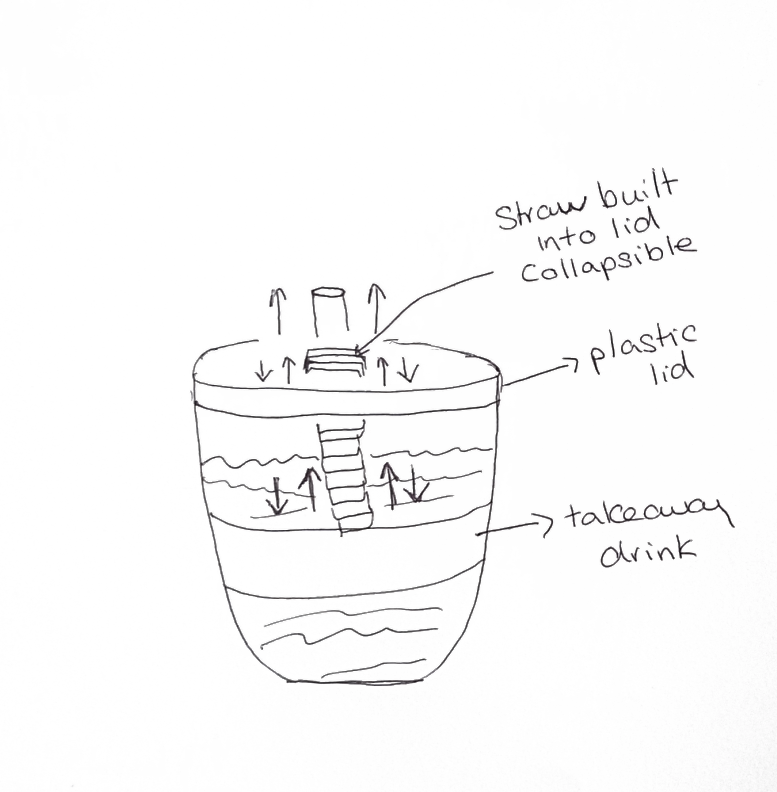 Straw built
into lid
collapsible
plastic
lid
takeaway
drink